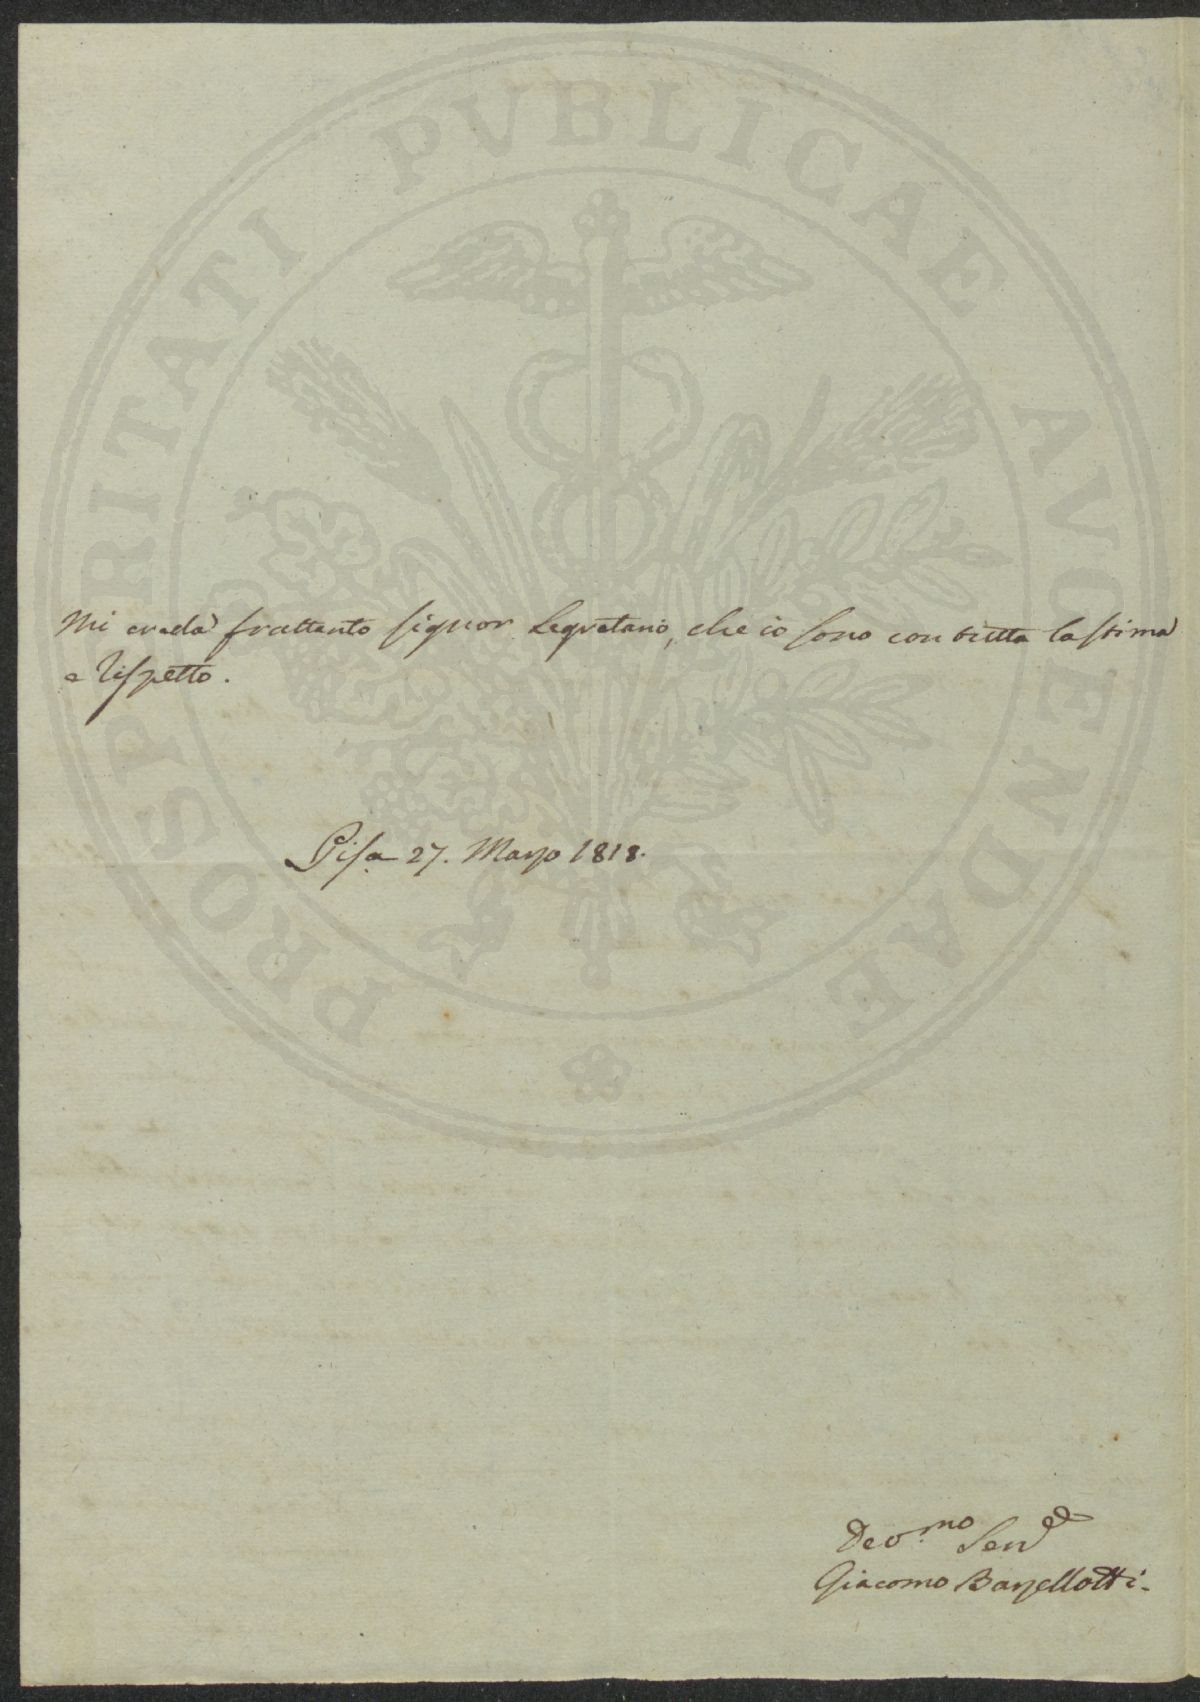 PROSPERITATI PUBLICAE AUGENDAE
Mi creda frattanto signor Segretario, che io sono con tutta la stima
e rispetto.
Pisa 27. Marzo 1818.
Dev.mo Serv
Giacomo Barzellotti.